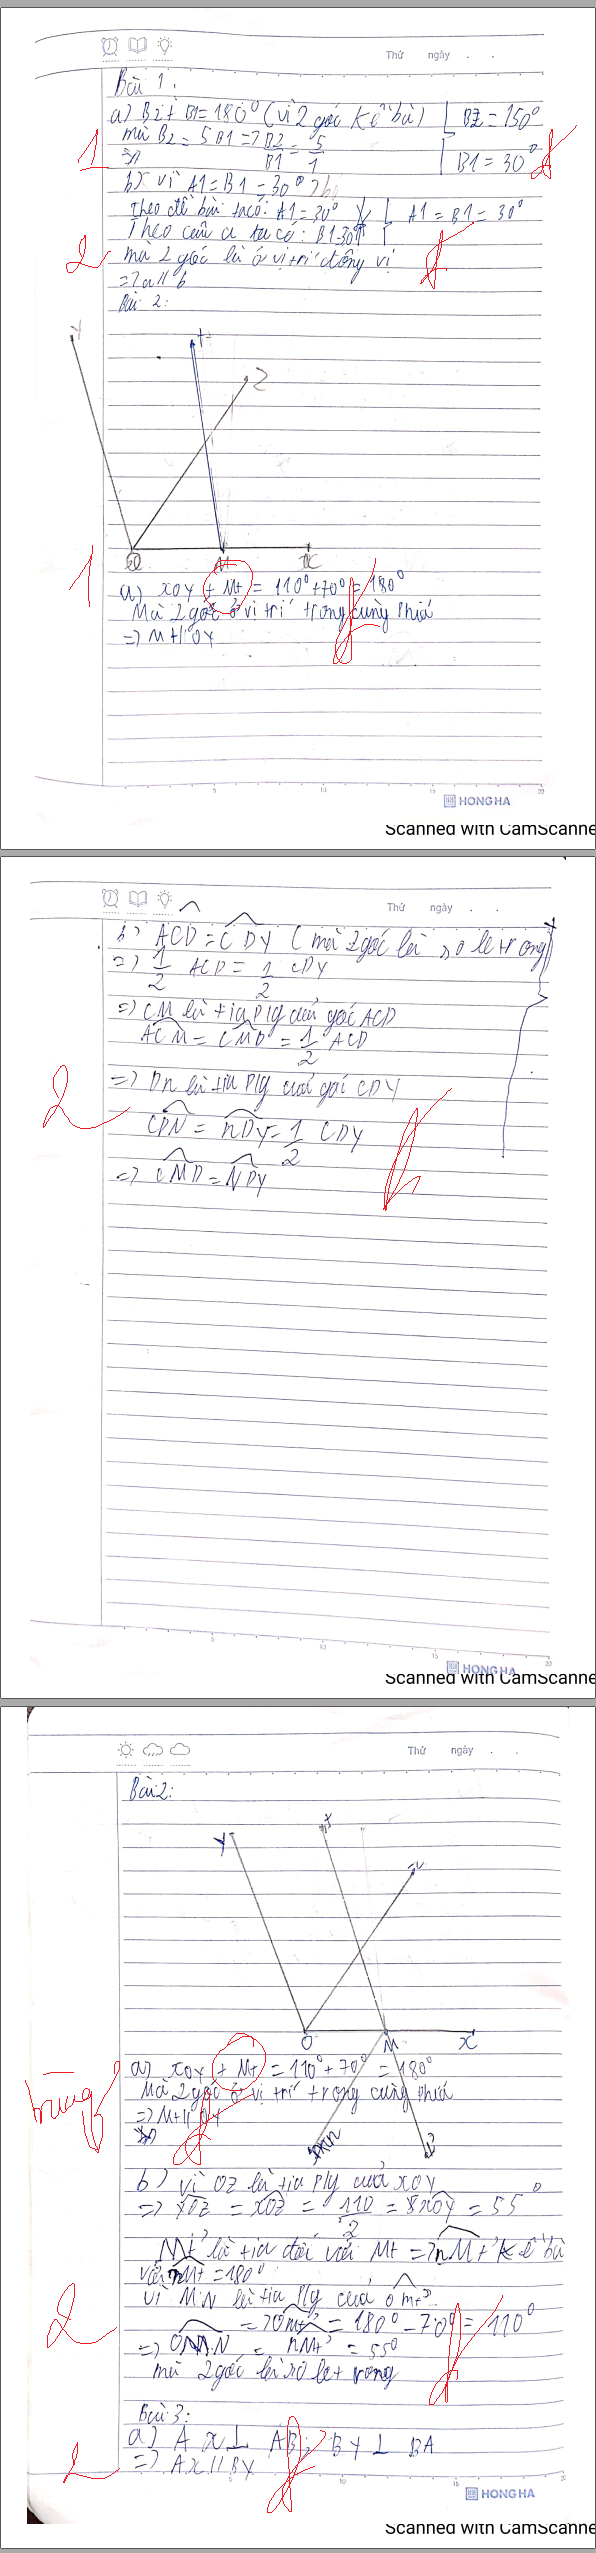 Thứ ngày
Bài 1:
a) B2 + B1 = 180° (vì 2 góc kề bù) B2 = 150°
mà B2 = 5 B1 => B2/B1 = 5/1 B1 = 30°
1
b) vì A1 = B1 = 30°
Theo đề bài ta có: A1 = 30° A1 = B1 = 30°
Theo câu a ta có: B1 30°
2
mà 2 góc là ở vị trí đồng vị
=> a // b
Bài 2:
y t z
O M x
1
a) xOy + Mt = 110° + 70° = 180°
Mà 2 góc ở vị trí trong cùng phía
=> Mt // Oy
5 10 15 20
HONG HA
Scanned with CamScanne
Thứ ngày
b) ACD = CDy (mà 2 góc là so le trong)
=> 1/2 ACD = 1/2 CDy
=> CM là tia p/g của góc ACD
ACM = CMD = 1/2 ACD
=> Dn là tia p/g của góc CDY
2
CDN = nDy = 1/2 CDY
=> CMD = NDY
5 10 15 20
HONG HA
Scanned with CamScanne
Thứ ngày
Bài 2:
y t z
O M x
a) xOy + Mt = 110° + 70° = 180°
trùng
Mà 2 góc ở vị trí trong cùng phía
=> Mt // Oy
b) vì OZ là tia p/g của xOy
=> yOz = xOz = 110/2 = xOy = 55°
Mt' là tia đối với Mt => nMt' kề bù
với nMt = 180°
vì MN là tia p/g của OMt'
2
=> OMt' = 180° - 70° = 110°
=> OMN = nMt' = 55°
mà 2 góc là so le trong
Bài 3:
a) Ax ⊥ AB; By ⊥ BA
2
=> Ax // By
5 10 15 20
HONG HA
Scanned with CamScanne